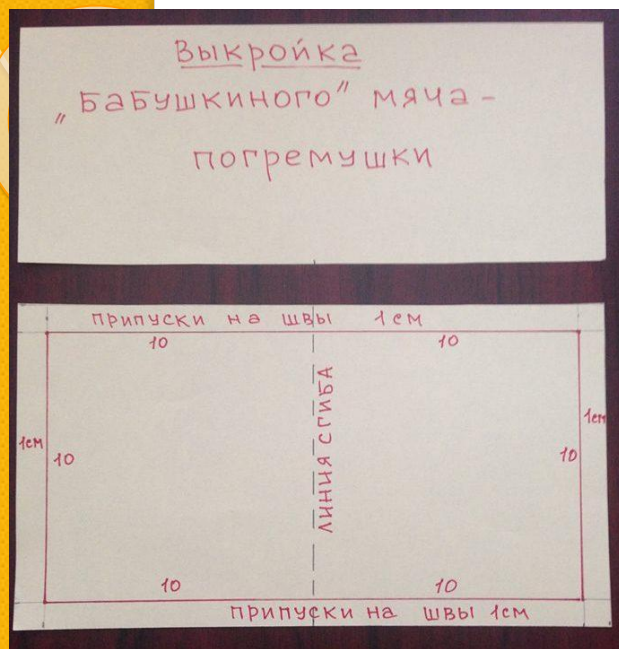 Выкройка
„Бабушкиного” мяча-
погремушки
припуски на швы 1см
10 10
1см 10 линия сгиба 10 1см
10 10
припуски на швы 1см